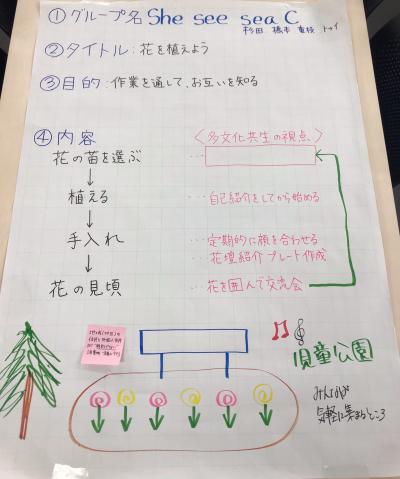 ① グループ名 She see sea C
杉田 橋本 重枝 トゥイ
② タイトル：花を植えよう
③ 目的：作業を通して、お互いを知る
④ 内容
〈多文化共生の視点〉
花の苗を選ぶ …
↓
植える … 自己紹介をしてから始める
↓
手入れ … 定期的に顔を合わせる
… 花壇紹介プレート作成
↓
花の見頃 … 花を囲んで交流会
児童公園
みんなが
気軽に集まるところ